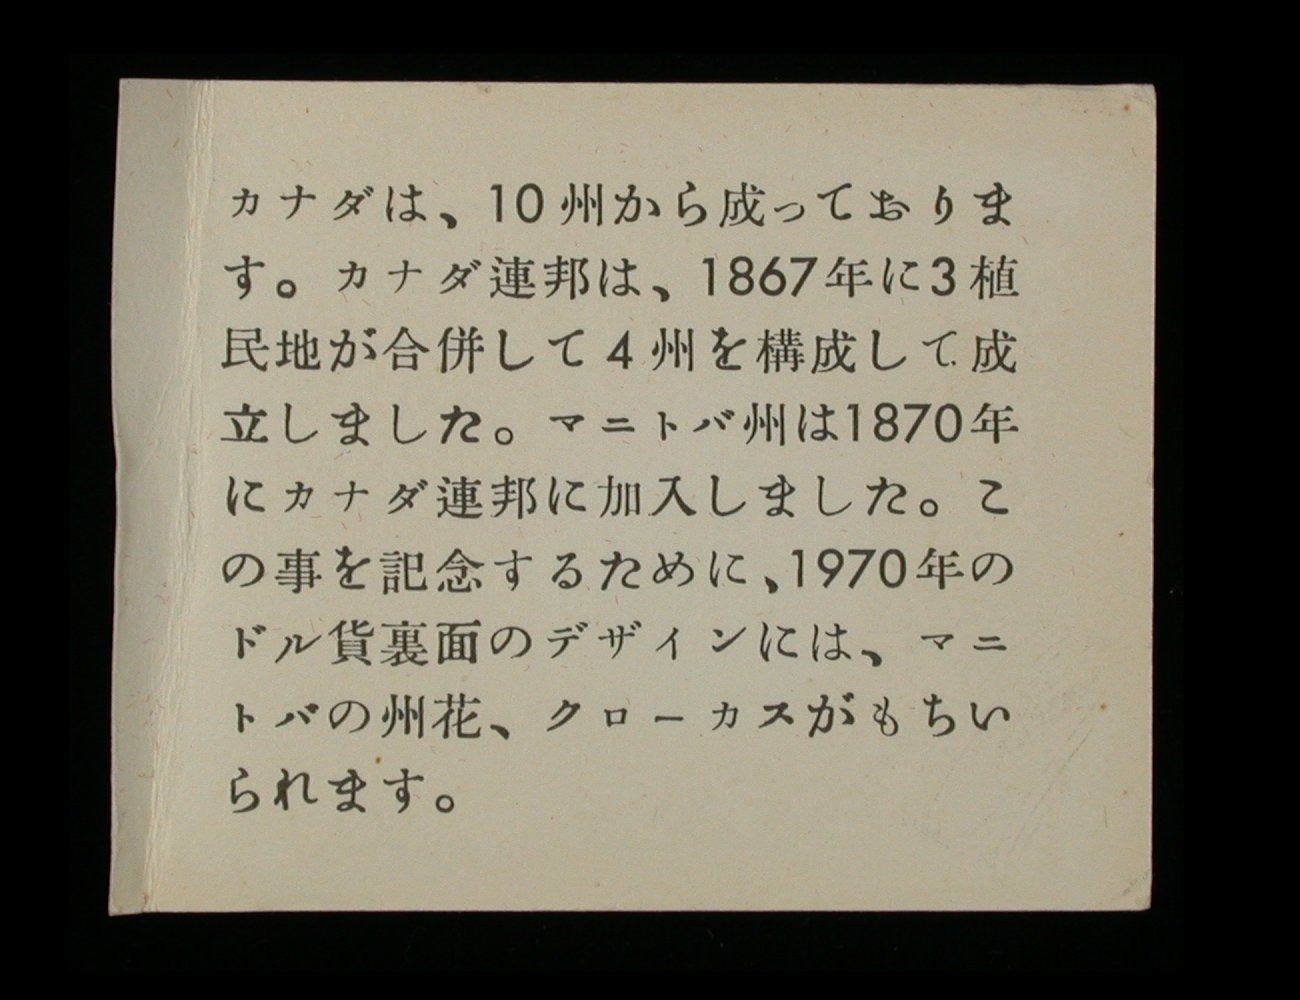 カナダは、10州から成っておりま
す。カナダ連邦は、1867年に3植
民地が合併して4州を構成して成
立しました。マニトバ州は1870年
にカナダ連邦に加入しました。こ
の事を記念するために、1970年の
ドル貨裏面のデザインには、マニ
トバの州花、クローカスがもちい
られます。